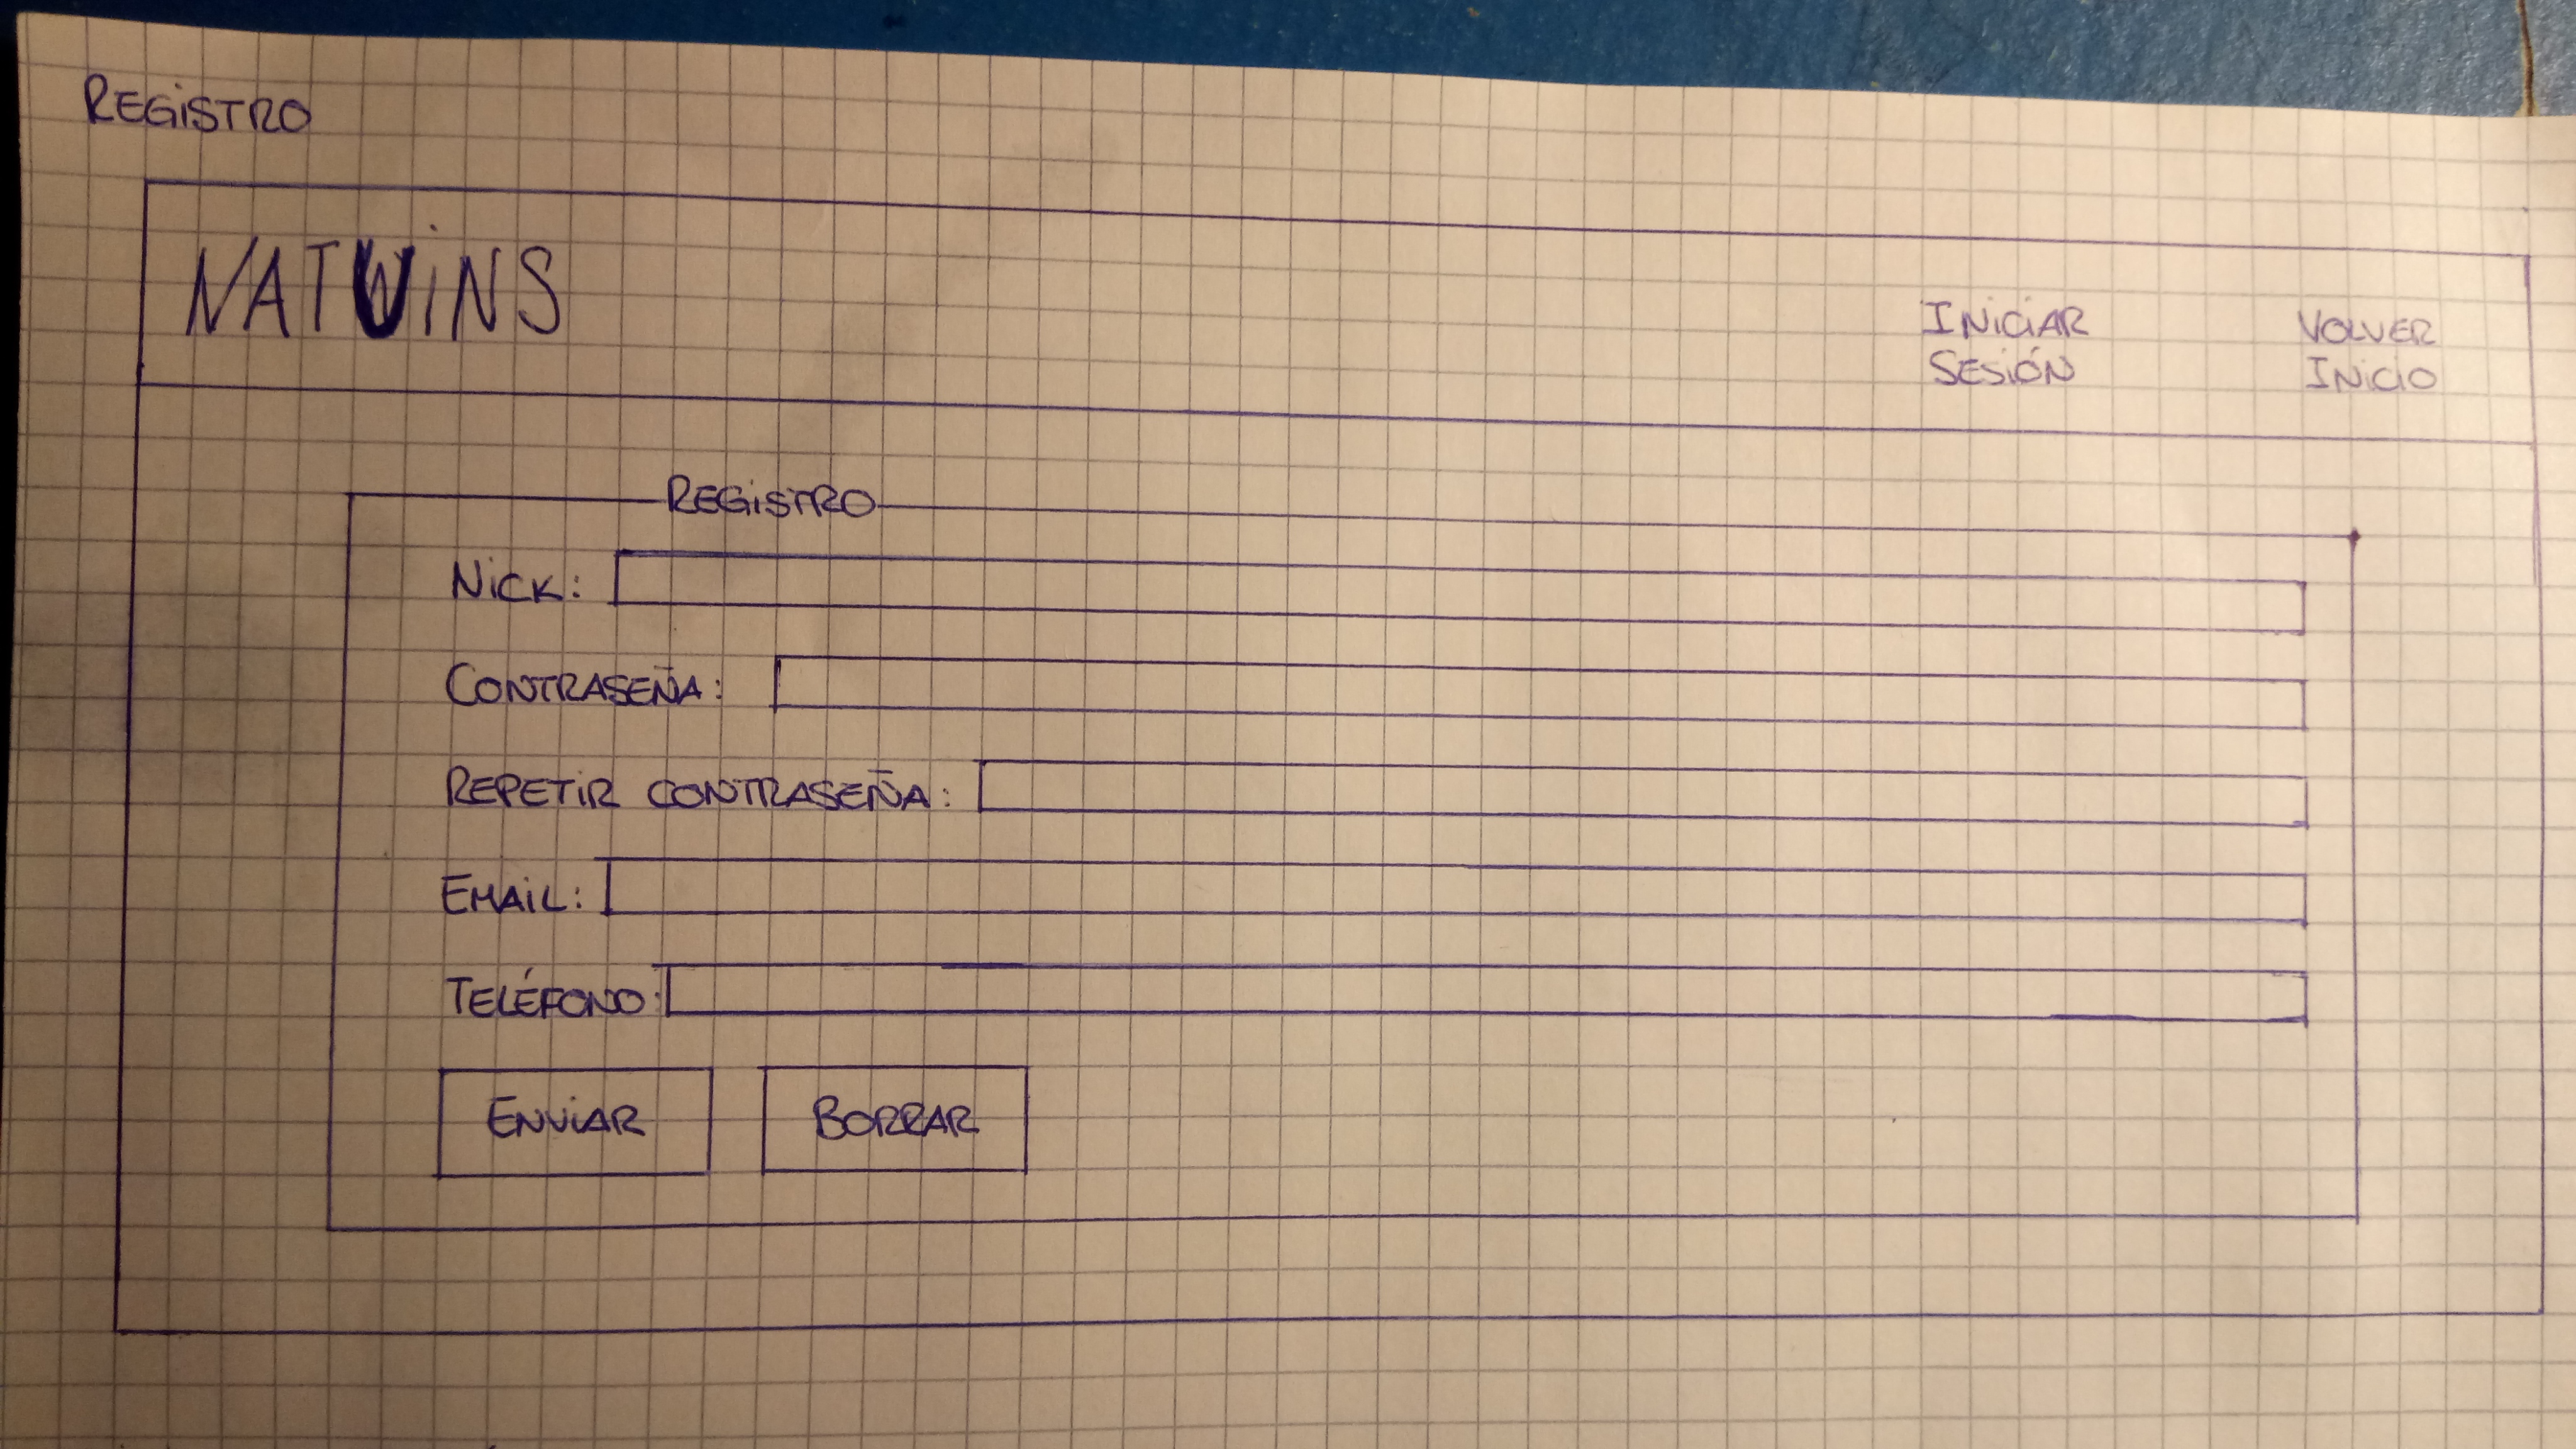 REGISTRO
NATWINS
INICIAR
SESIÓN
VOLVER
INICIO
REGISTRO
NICK:
CONTRASEÑA:
REPETIR CONTRASEÑA:
EMAIL:
TELÉFONO:
ENVIAR
BORRAR